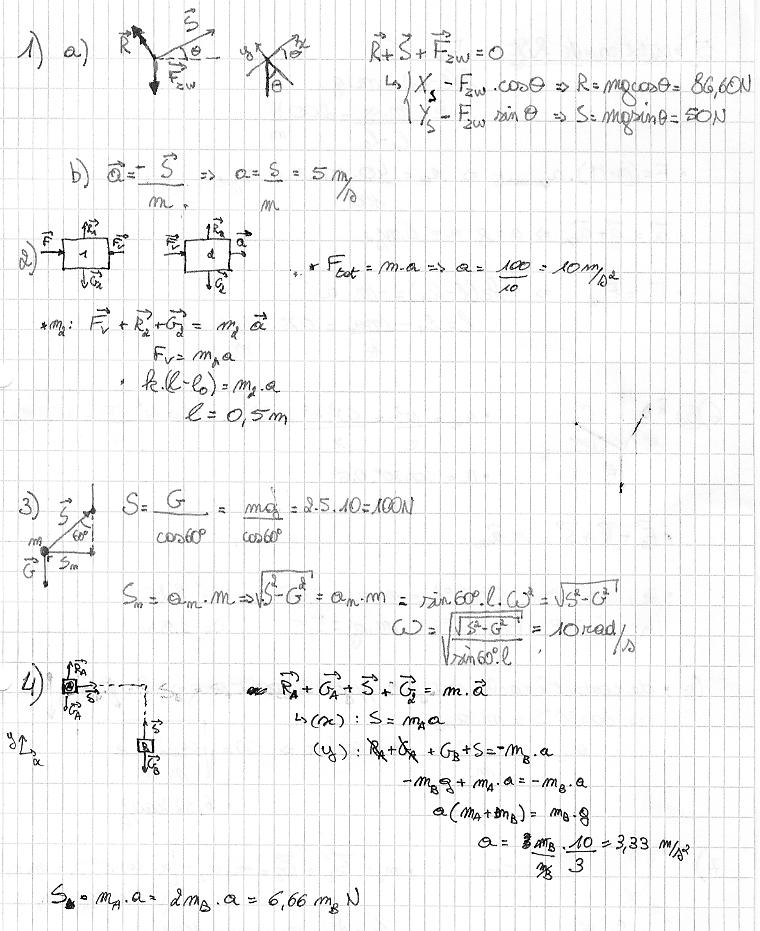 1) a) R⃗ S⃗ θ F⃗zw y x θ θ R⃗+S⃗+F⃗zw=0
↳ { Xs - Fzw . cosθ ⇒ R = mgcosθ = 86,60N
{ Ys - Fzw sinθ ⇒ S = mgsinθ = 50N
b) a⃗ = -S⃗/m ⇒ a = S/m = 5 m/s
2) F⃗ R⃗1 1 F⃗v G⃗1 F⃗v R⃗2 2 a⃗ G⃗2 * Ftot = m·a ⇒ a = 100/10 = 10 m/s²
*m2: F⃗v + R⃗2 + G⃗2 = m2 a⃗
Fv = m2 a
k.(l-l0) = m2.a
l = 0,5m
3) S⃗ 60° m G⃗ Sn S = G/cos60° = mg/cos60° = 2.5.10=100N
Sn = an.m ⇒ √S²-G² = an.m = sin60°.l.ω² = √S²-G²
ω = √(√S²-G²/sin60°.l) = 10 rad/s
4) R⃗A A S⃗ G⃗A S⃗ B G⃗B y x R⃗A + G⃗A + S⃗ + G⃗2 = m.a⃗
↳(x) : S = mA a
(y) : RA+GA + GB + S = -mB.a
-mB g + mA.a = -mB.a
a(mA+mB) = mB.g
a = mB/mB . 10/3 = 3,33 m/s²
S = mA.a = 2mB.a = 6,66 mB N